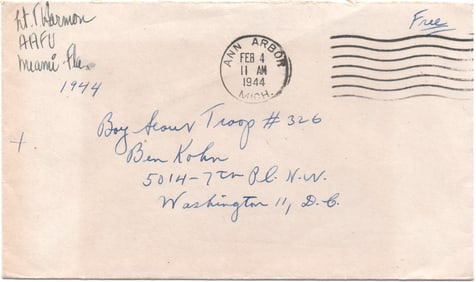 Lt. T Harmon
AAFU
Miami Fla.
1944
Free
ANN ARBOR
FEB 4
11 AM
1944
MICH.
Boy Scout Troop # 326
Ben Kohn
5014-7th Pl. N.W.
Washington 11, D.C.